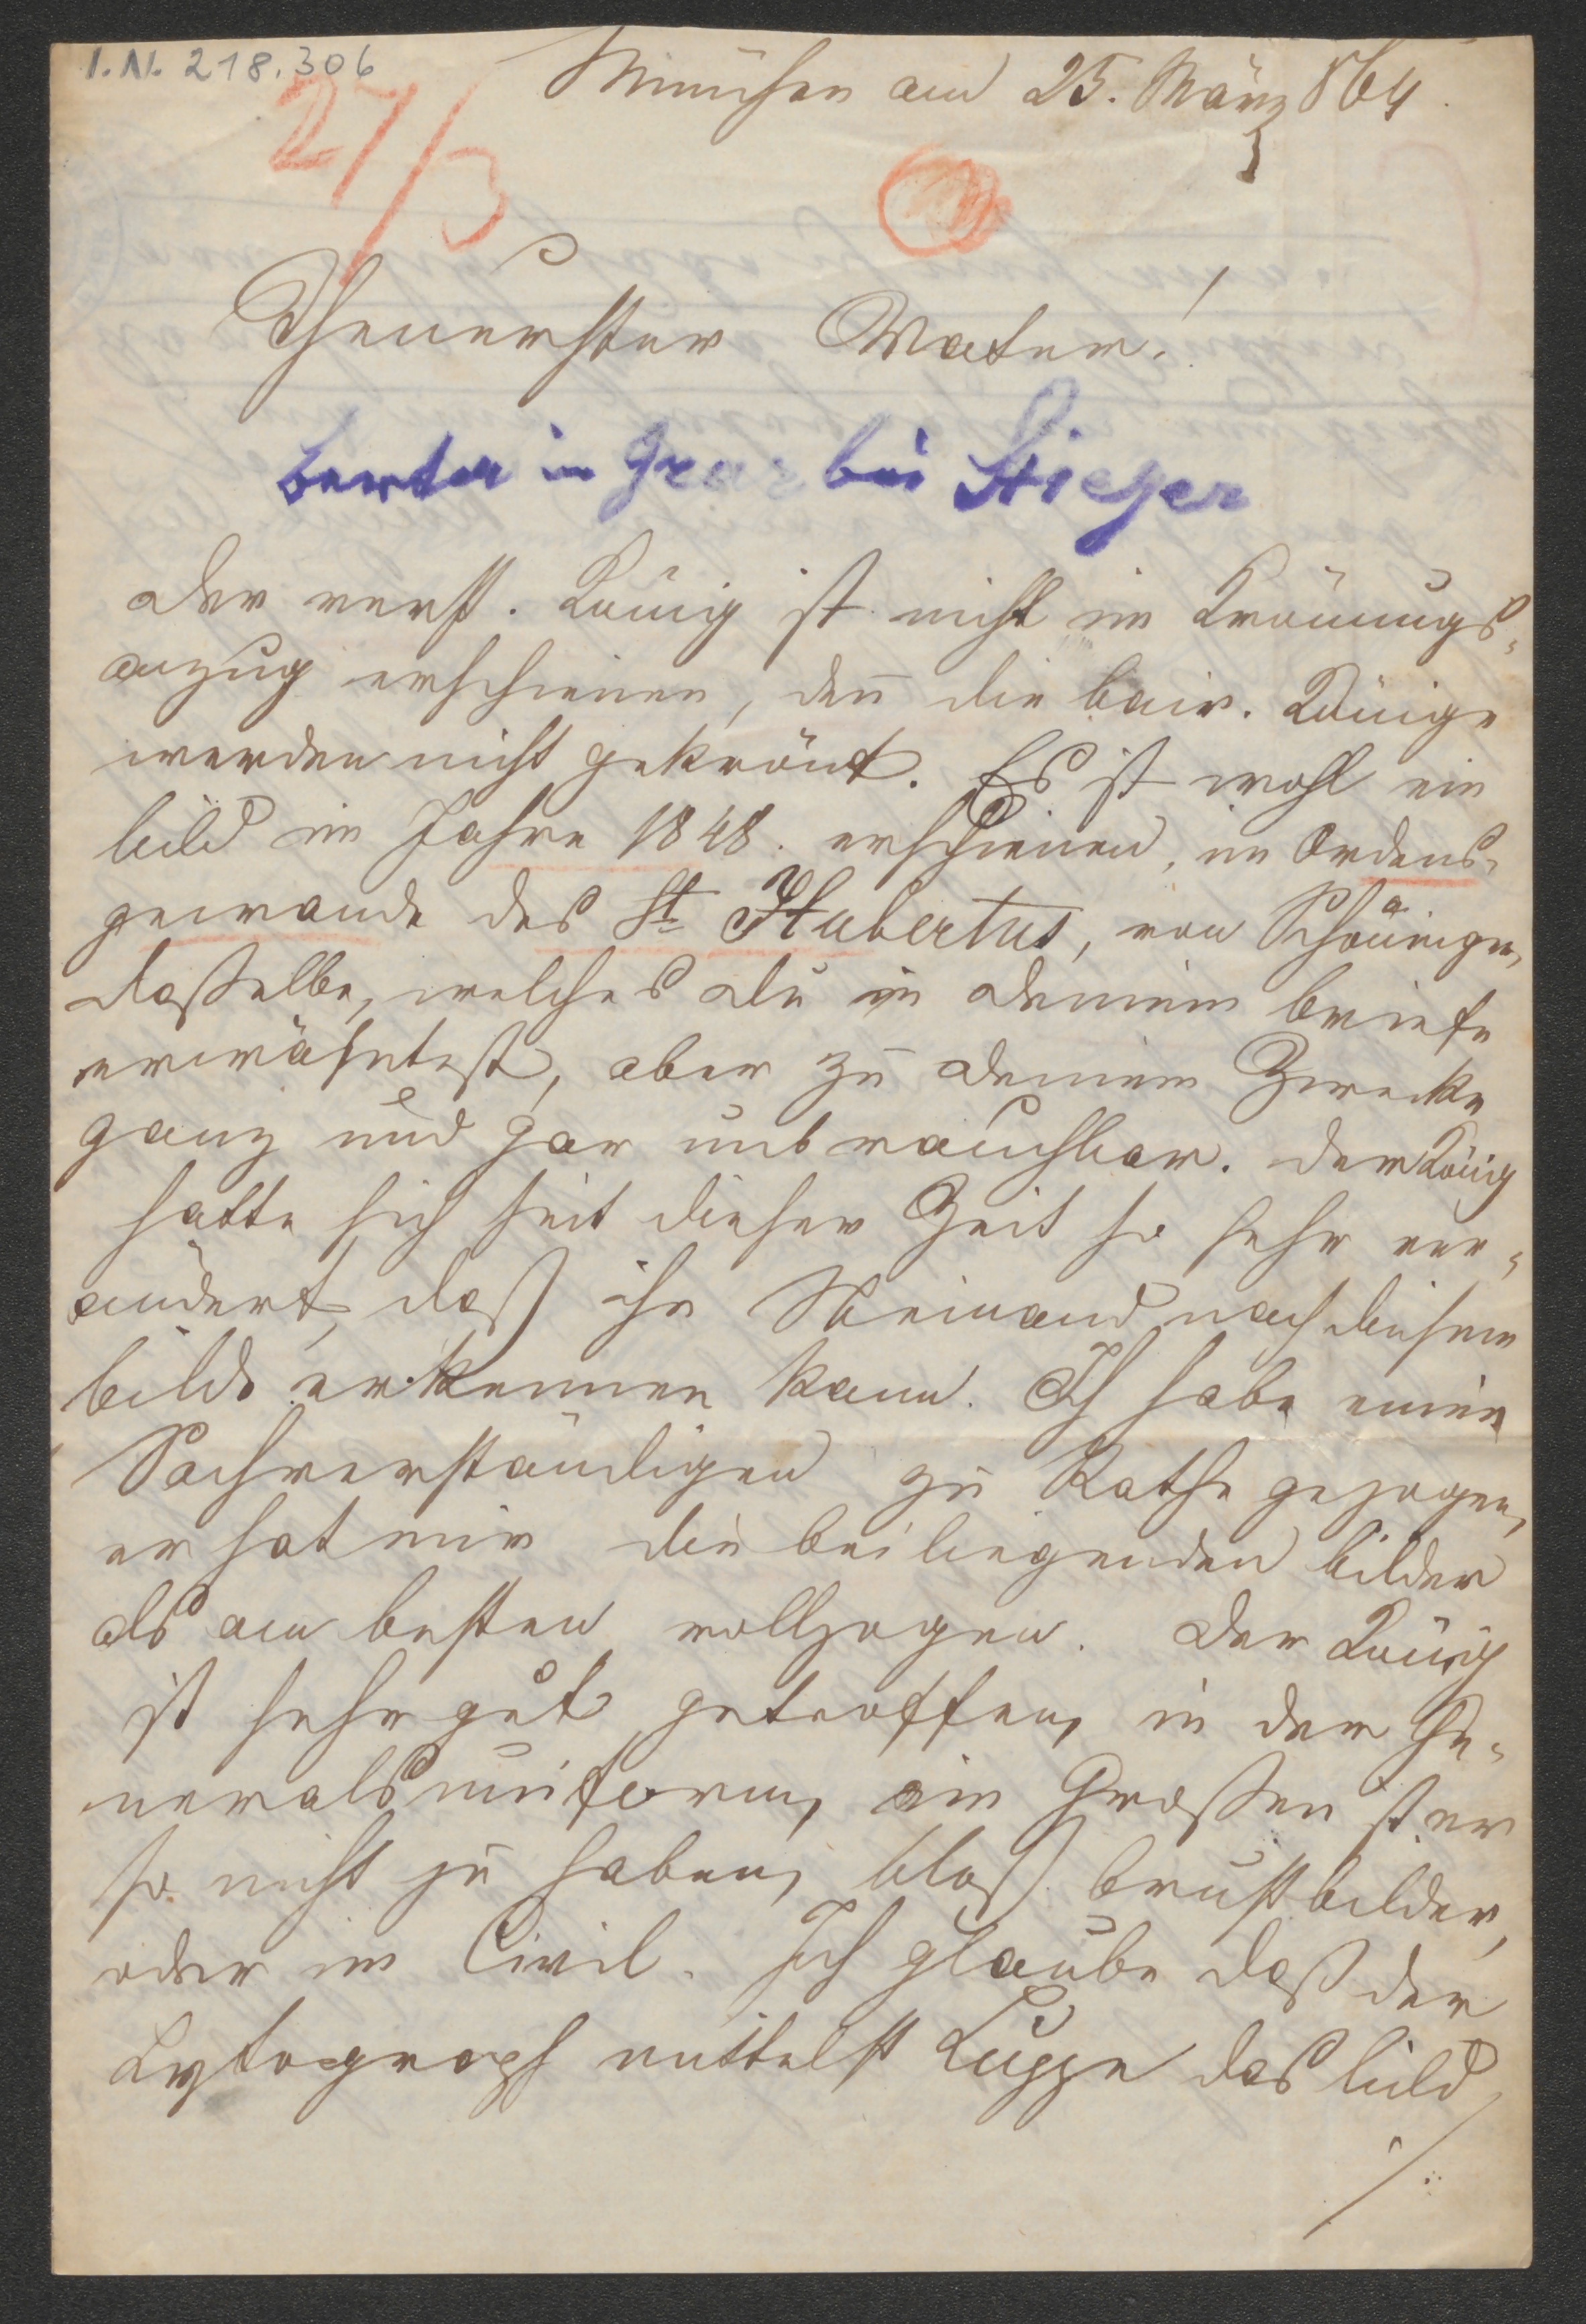 I.N. 218.306
München am 25. März 864.
27/3
Theuerster Vater!
in Graz bei Stieger
Der verst. König ist nicht im Krönungs-
anzug erschienen, den̄ die bair. Könige
werden nicht gekrönt. Es ist wohl ein
Bild im Jahre 1848. erschienen, im Ordens-
gewande des St Hubertus, von
dasselbe, welches du in deinem Briefe
erwähntest, aber zu deinem Zwecke
ganz und gar unbrauchbar. Der König
hatte sich seit dieser Zeit so sehr ver-
ändert, daß ihn Niemand nach diesem
Bilde erkennen kann. Ich habe einen
Sachverständigen zu Rathe gezogen,
er hat mir die beiliegenden Bilder
als am besten vollzogen. Der König
ist sehr gut getroffen, in der Ge-
neralsuniform, im Großen ist er
so nicht zu haben, bloß Brustbilder,
oder im Civil. Ich glaube daß der
Lytograph mittelst Luppe das Bild
./.